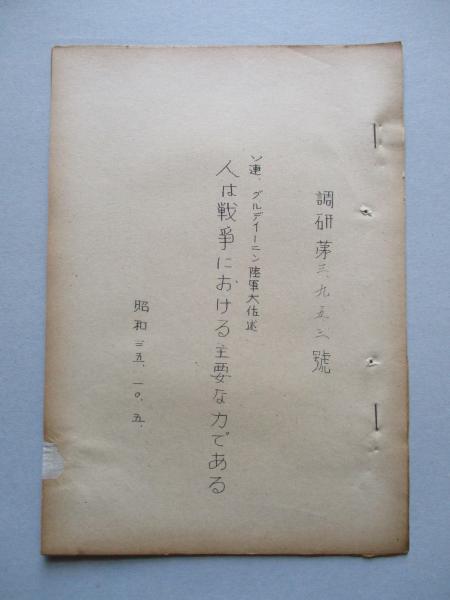 調研第三九五二號
ソ連、グルデイーニン陸軍大佐述
人は戦爭における主要な力である
昭和三五、一〇、五、